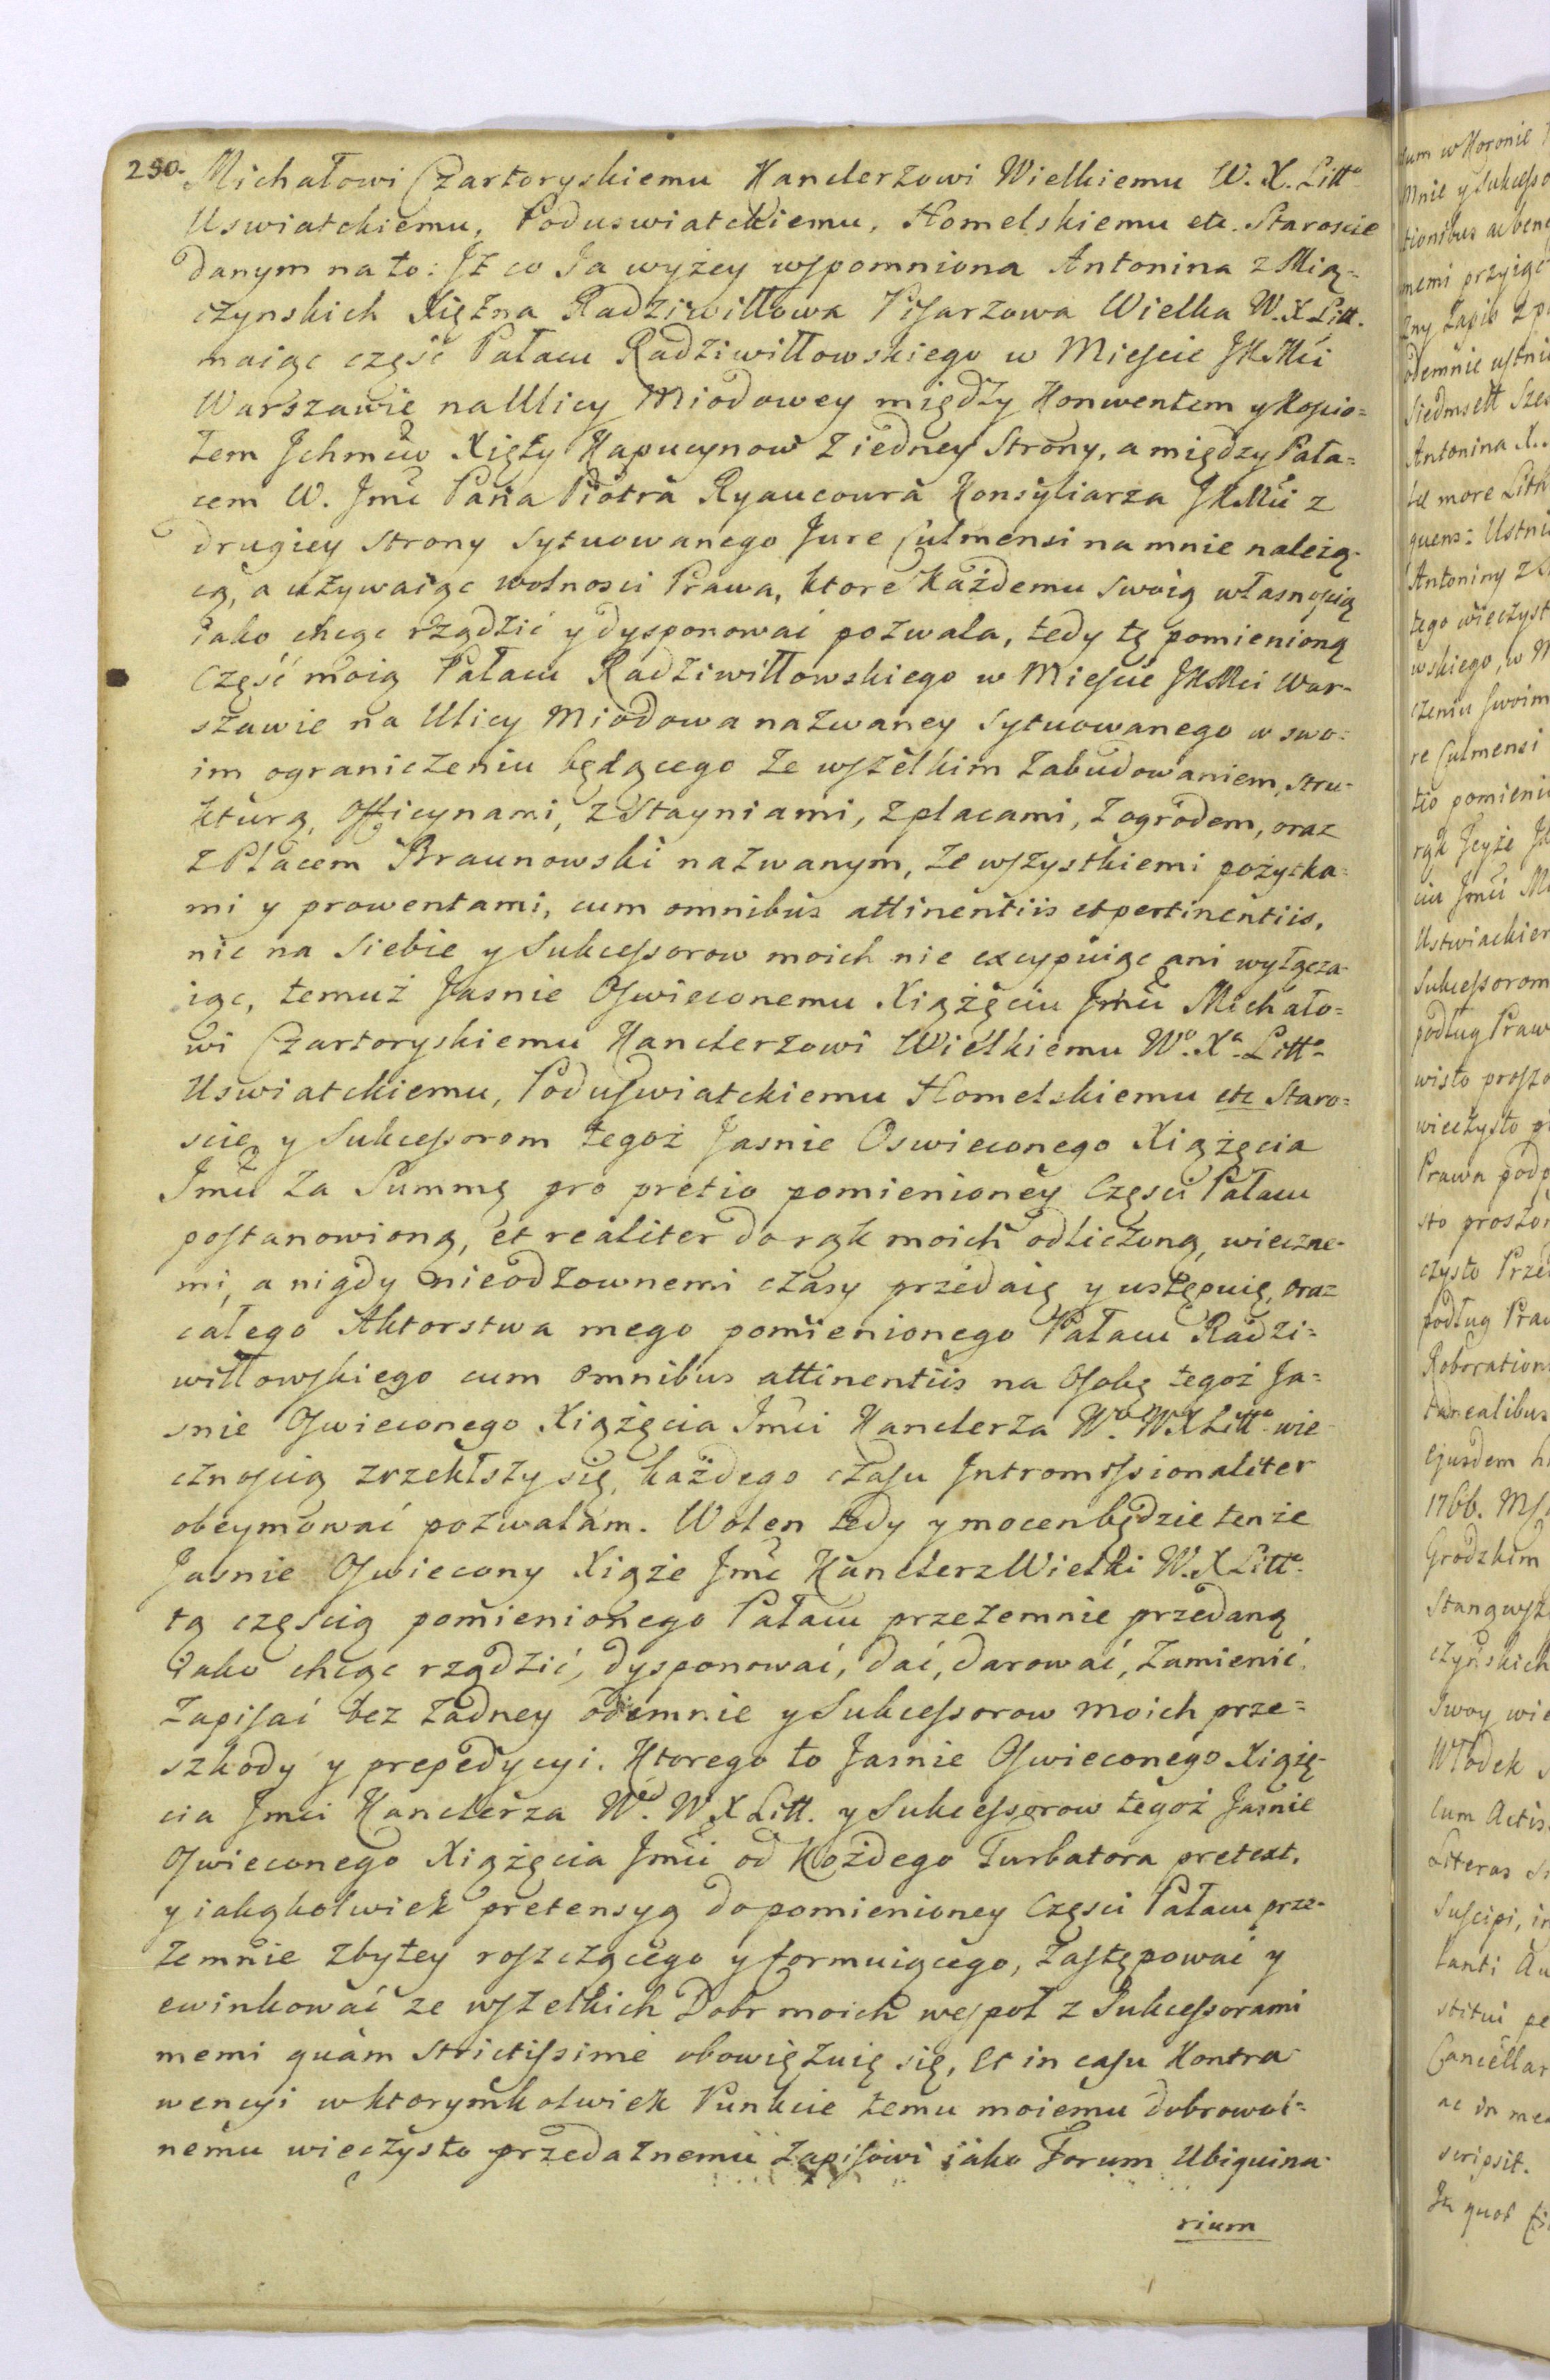 250.
Michałowi Czartoryskiemu Kanclerzowi Wielkiemu W. X. Litt.
Uswiatckiemu, Poduswiatckiemu, Homelskiemu etc. Staroscie
danym na to: Jż co Ja wyżey wspomniona Antonina z Mią=
czynskich Xiężna Radziwiłłowa Pisarzowa Wielka W. X Litt.
maiąc część Pałacu Radziwiłłowskiego w Mieście JKMci
Warszawie na Ulicy Miodowey między Konwentem y Kościo=
łem Jchmciw Xięży Kapucynow z iedney Strony, a między Pała=
cem W. Jmć Pana Piotra Ryaucoura Konsyliarza JKMci z
drugiey strony sytuowanego Jure Culmensi na mnie należą-
cą, a używaiąc wolnosci Prawa, ktore każdemu swoią własnością
iako chcąc rządzić y dysponować pozwala, tedy tę pomienioną
Część moią Pałacu Radziwiłłowskiego w Mieście JKMci War-
szawie na Ulicy Miodowa nazwaney sytuowanego w swo=
im ograniczeniu będącego ze wszelkim zabudowaniem, stru-
kturą, Officynami, z Stayniami, z placami, z ogrodem, oraz
z Placem Braunowski nazwanym, ze wszystkiemi pożytka=
mi y prowentami, cum omnibus attinentiis et pertinentiis,
nic na siebie y Sukcessorow moich nie excypuiąc ani wyłącza-
iąc, temuż Jasnie Oswieconemu Xiążęciu Jmci Michało=
wi Czartoryskiemu Kanclerzowi Wielkiemu Wo. Xa. Litto.
Uswiatckiemu, Poduswiatckiemu Homelskiemu etc Staro=
scie y Sukcessorom tegoż Jasnie Oswieconego Xiążęcia
Jmci za Summę pro pretio pomienioney Częsci Pałacu
postanowioną, et realiter do rąk moich odliczoną, wieczne-
mi, a nigdy nieodzownemi czasy przedaię y ustępuię, oraz
całego Aktorstwa mego pomienionego Pałacu Radzi=
wiłłowskiego cum omnibus attinentiis na Osobę tegoż Ja=
snie Oswieconego Xiążęcia Jmci Kanclerza Wgo. W X Litto. wie
cznoscią zrzekłszy się, każdego czasu Jntromissionaliter
obeymować pozwalam. Wolen tedy y mocen będzie tenże
Jasnie Oswiecony Xiąże Jmć Kanclerz Wielki W. X Litto.
tą częscią pomienionego Pałacu przezemnie przedaną
iako chcąc rządzić, dysponować, dać, darować, zamienić
zapisać bez żadney odemnie y Sukcessorow moich prze=
szkody y prepedycyi. Ktorego to Jasnie Oswieconego Xiążę-
cia Jmci Kanclerza Wgo. W X Litt. y Sukcessorow tegoż Jasnie
Oswieconego Xiążęcia Jmci od każdego Turbatora pretext,
y iakąkolwiek pretensyą do pomienioney Częsci Pałacu prze-
zemnie zbytey roszczącego y formuiącego, zastępować y
ewinkować ze wszelkich Dobr moich wespoł z Sukcessorami
memi quàm strictissime obowięzuię się, Et in casu Kontra
wencyi w ktorymkolwiek Punkcie temu moiemu dobrowol=
nemu wieczysto przedażnemu zapisowi iako Forum Ubiquina-
rium